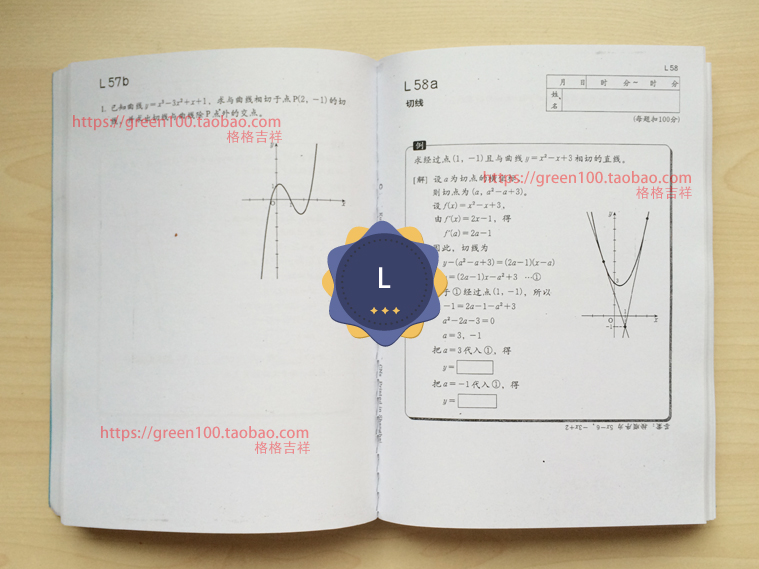 L57b
1. 已知曲线y=x³-3x²+x+1，求与曲线相切于点P(2，-1)的切
线，并求出切线与曲线除P点外的交点。
https://green100.taobao.com
格格吉祥
y
1
O
x
https://green100.taobao.com
格格吉祥
L
L58
L58a
切线
月 日 时 分~ 时 分
姓名
(每题和100分)
例
求经过点(1，-1)且与曲线y=x²-x+3相切的直线。
[解] 设a为切点的横坐标，
https://green100.taobao.com
格格吉祥
则切点为(a，a²-a+3)。
设f(x)=x²-x+3，
由f′(x)=2x-1，得
f′(a)=2a-1
因此，切线为
y-(a²-a+3)=(2a-1)(x-a)
=(2a-1)x-a²+3 …①
于①经过点(1，-1)，所以
-1=2a-1-a²+3
a²-2a-3=0
a=3，-1
把a=3代入①，得
y=
把a=-1代入①，得
y=
y
3
O
1
x
-1
答案：按顺序为 5x-6，-3x+2